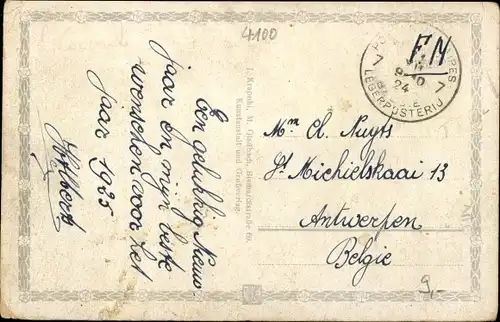 4100
Een gelukkig Nieuw-
jaar en mijn beste
wenschen voor het
jaar 1925
F.N
7 7
24
LEGERPOSTERIJ
Mm Cl. Nuyts
St Michielskaai 13
Antwerpen
Belgie
9,-